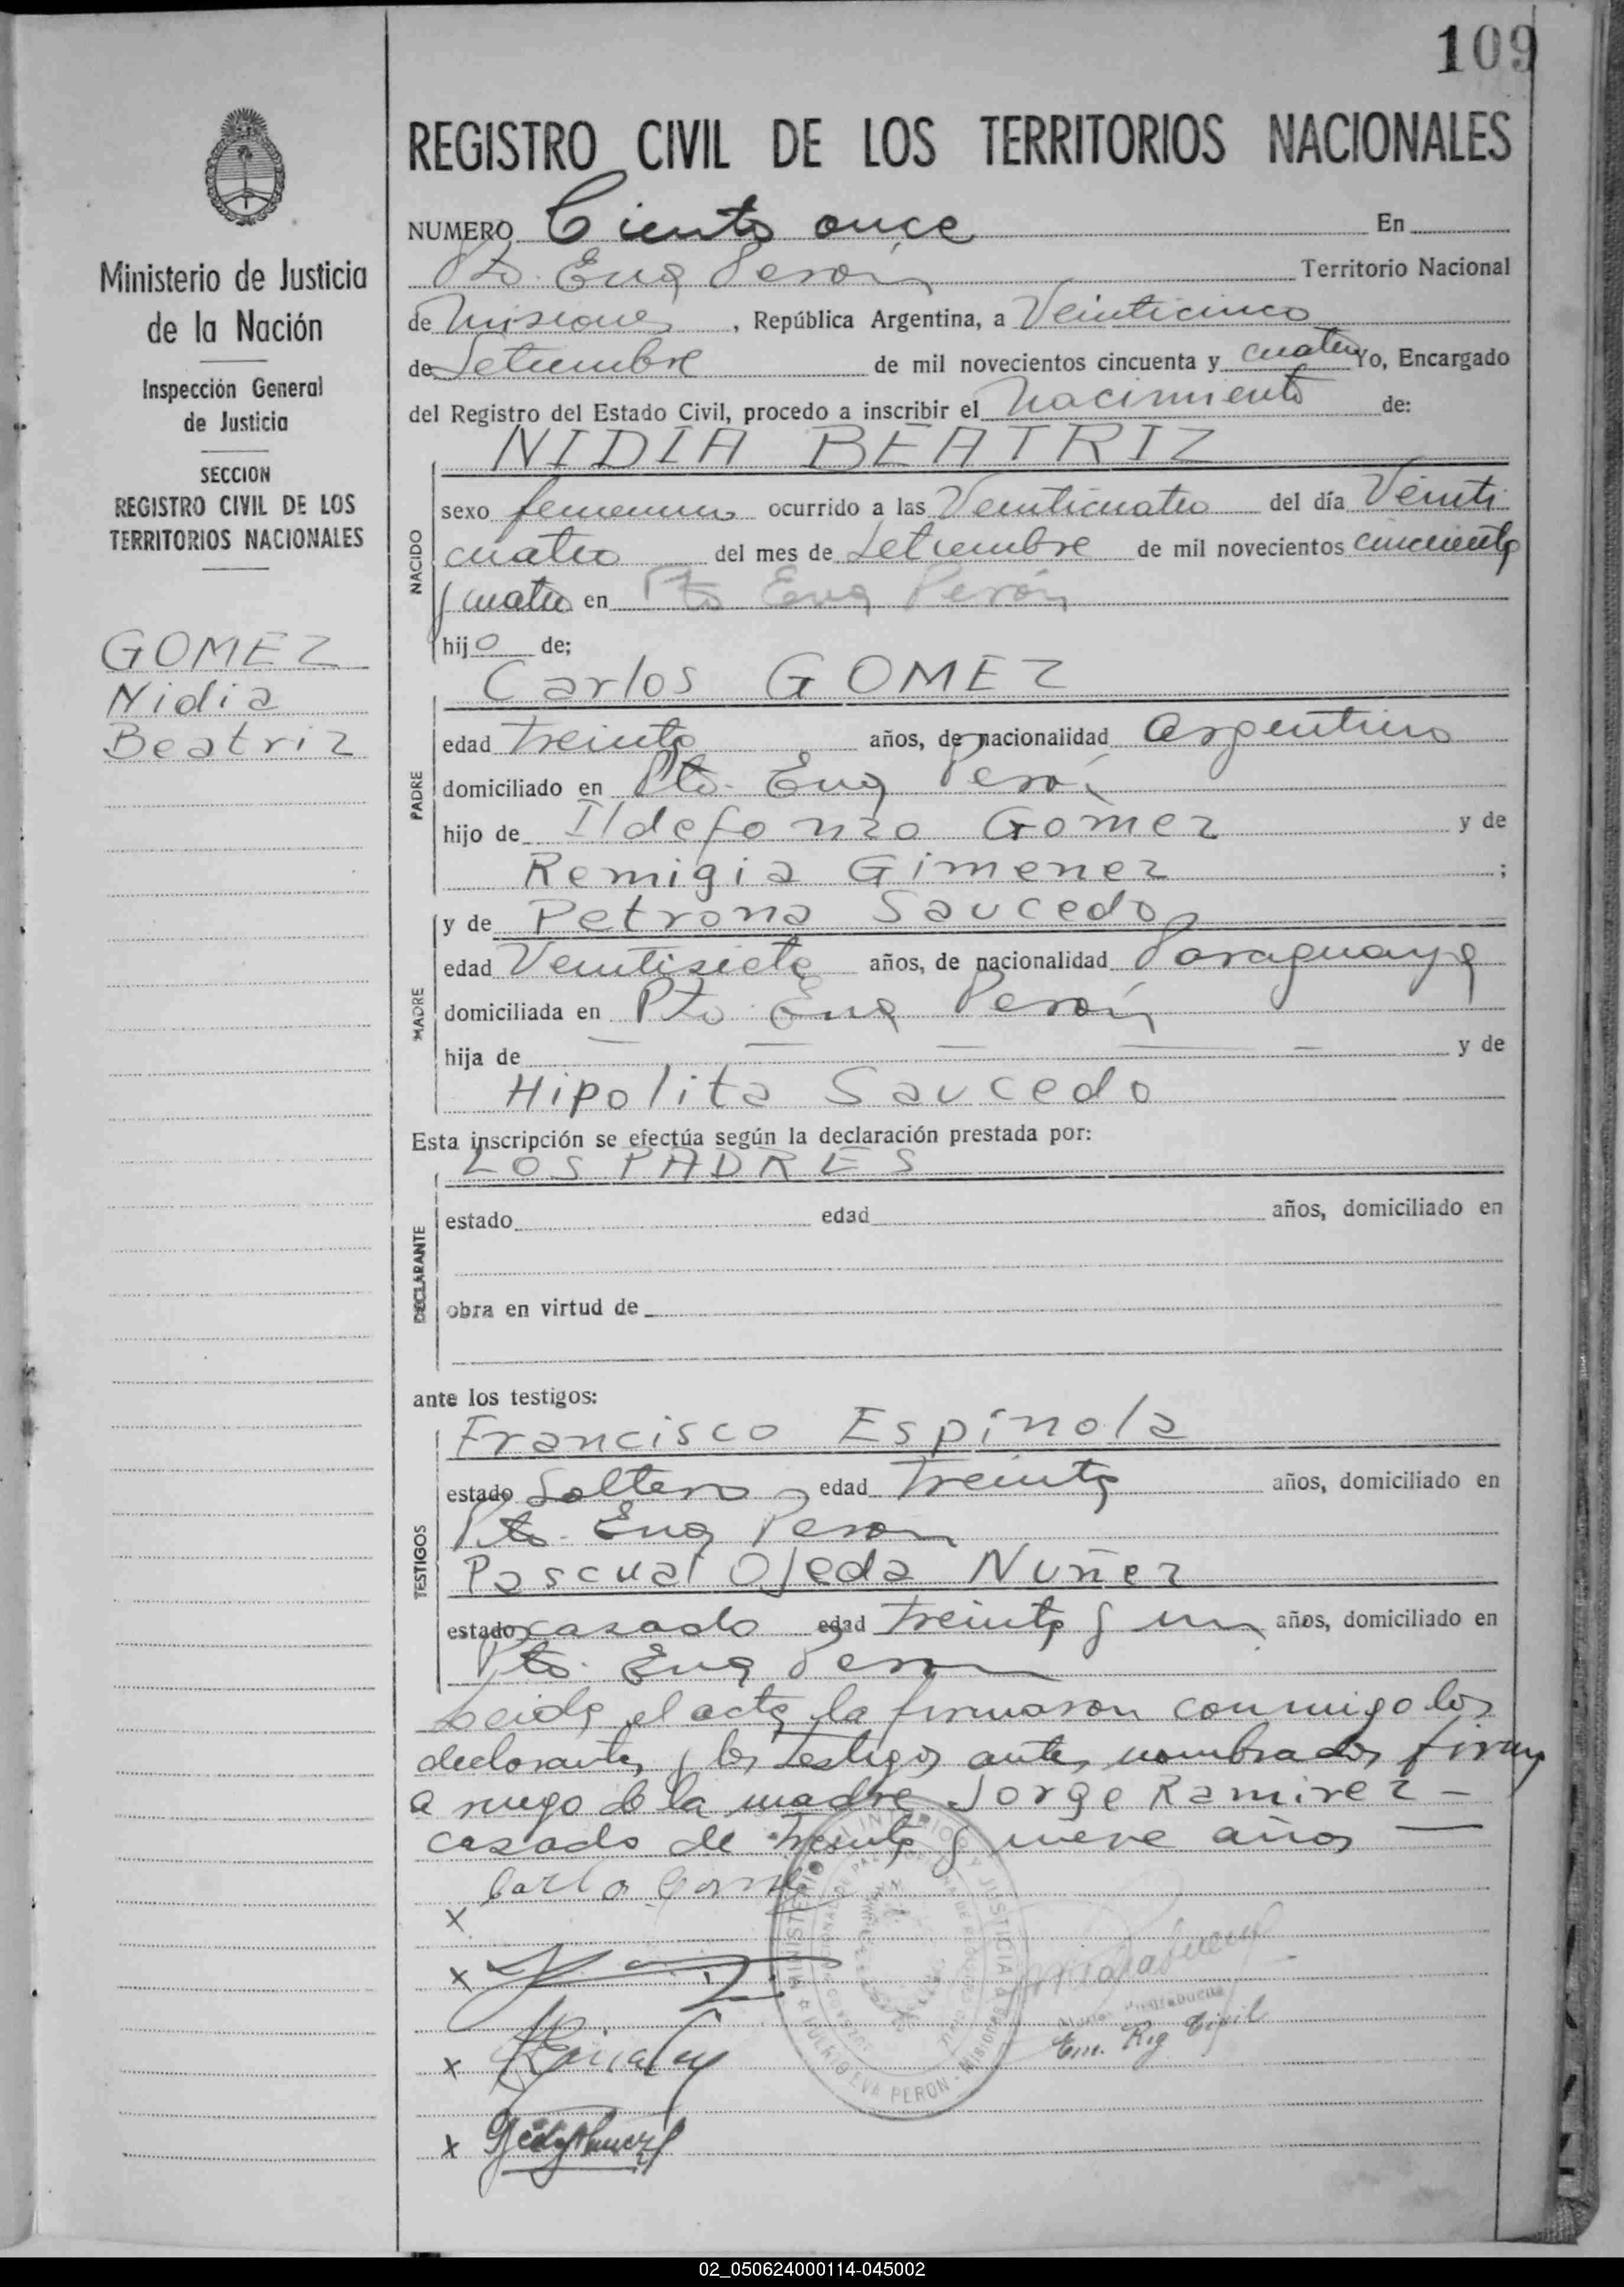 109
REGISTRO CIVIL DE LOS TERRITORIOS NACIONALES
Ministerio de Justicia
de la Nación
Inspección General
de Justicia
SECCION
REGISTRO CIVIL DE LOS
TERRITORIOS NACIONALES
GOMEZ
Nidia
Beatriz
NUMERO Ciento once En
Pto. Eva Perón Territorio Nacional
de Misiones, República Argentina, a Veinticinco
de Setiembre de mil novecientos cincuenta y cuatro Yo, Encargado
del Registro del Estado Civil, procedo a inscribir el Nacimiento de:
NIDIA BEATRIZ
NACIDO
sexo femenino ocurrido a las Veinticuatro del día Veinti
cuatro del mes de Setiembre de mil novecientos cincuenta
y cuatro en Pto Eva Perón
hijo de;
Carlos GOMEZ
PADRE
edad treinta años, de nacionalidad Argentino
domiciliado en Pto. Eva Perón
hijo de Ildefonzo Gomez y de
Remigia Gimenez ;
y de Petrona Saucedo
MADRE
edad Veintisiete años, de nacionalidad Paraguaya
domiciliada en Pto Eva Perón
hija de — — — — — y de
Hipolita Saucedo
Esta inscripción se efectúa según la declaración prestada por:
LOS PADRES
DECLARANTE
estado edad años, domiciliado en
obra en virtud de
ante los testigos:
Francisco Espínola
TESTIGOS
estado Soltero edad treinta años, domiciliado en
Pto. Eva Peron
Pascual Ojeda Nuñez
estado casado edad treinta y un años, domiciliado en
Pto. Eva Peron
Leida el acta la firmaron conmigo los
declarantes y los testigos antes nombrados firma
a ruego de la madre Jorge Ramirez —
casado de treinta y nueve años —
Carlo Gomez
x
x
x
x
MINISTERIO DEL INTERIOR Y JUSTICIA
PUERTO EVA PERON - Misiones
Enc. Reg Civil
02_050624000114-045002